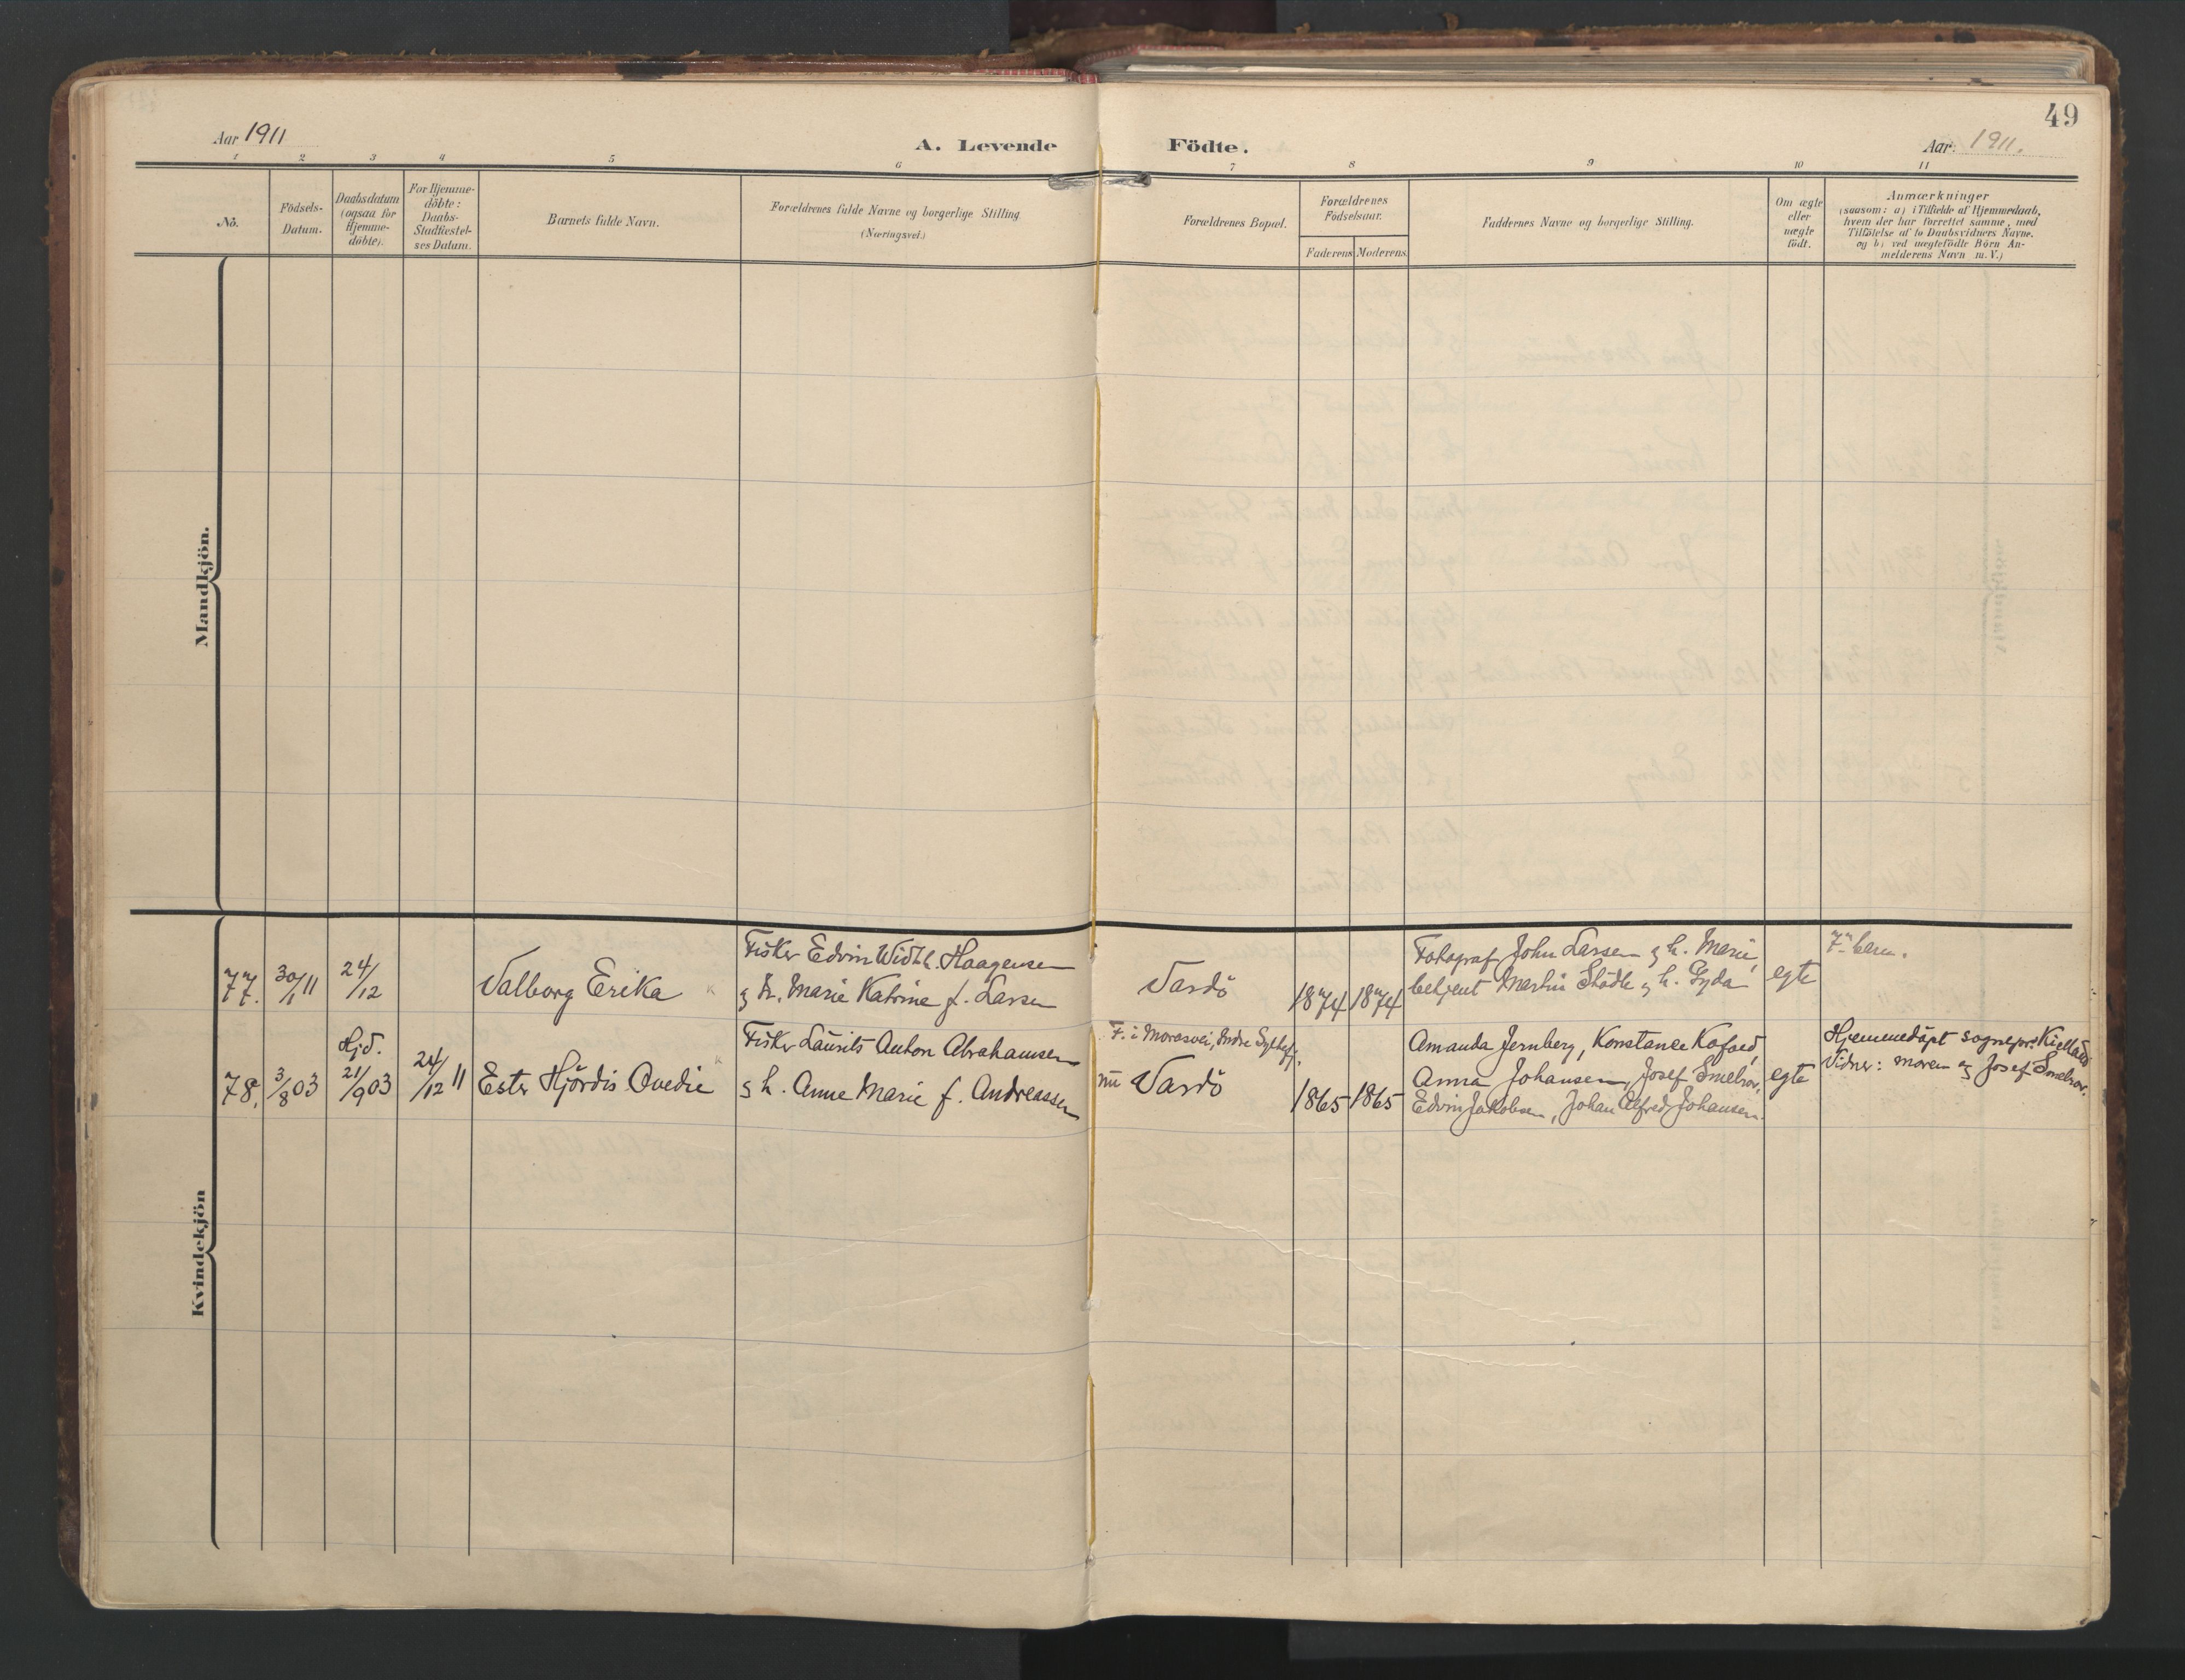 49
Aar 1911
A. Levende Födte.
Aar: 1911.
1 2 3 4 5 6 7 8 9 10 11
No.
Födsels-
Datum.
Daabsdatum
(ogsaa for
Hjemme-
döbte).
For Hjemme-
döbte:
Daabs-
Stadfæstel-
ses Datum.
Barnets fulde Navn.
Forældrenes fulde Navne og borgerlige Stilling
(Næringsvei.)
Forældrenes Bopæl.
Forældrenes
Födselsaar.
Faderens
Moderens.
Faddernes Navne og borgerlige Stilling.
Om ægte
eller
uægte
födt.
Anmærkninger
(saasom: a) i Tilfælde af Hjemmedaab,
hvem der har forrettet samme, med
Tilföielse af to Daabsvidners Navne,
og b) ved uægtefödte Börn An-
melderens Navn m. V.)
Mandkjön.
Kvindekjön
77.
30/11
24/12
Valborg Erika
Fisker Edvin Width. Haagensen
og h. Marie Katrine f. Larsen
Vardö
1874
1874
Fotograf John Larsen og h. Marie,
betjent Martin Stödle og h. Gyda
egte
7n barn.
78.
3/8 03
Hjd.
21/9 03
24/12 11
Ester Hjördis Ovedie
Fisker Laurits Anton Abrahamsen
og h. Anne Marie f. Andreassen
F. i Moresvei, Indre
nu Vardö
1865
1865
Amanda Jernberg, Konstance Kofoed,
Anna Johansen, Josef Smelror,
Edvin Jakobsen, Johan Alfred Johansen.
egte
Hjemmedöpt sognepr. Kielland
Vidner: moren og Josef Smelror.